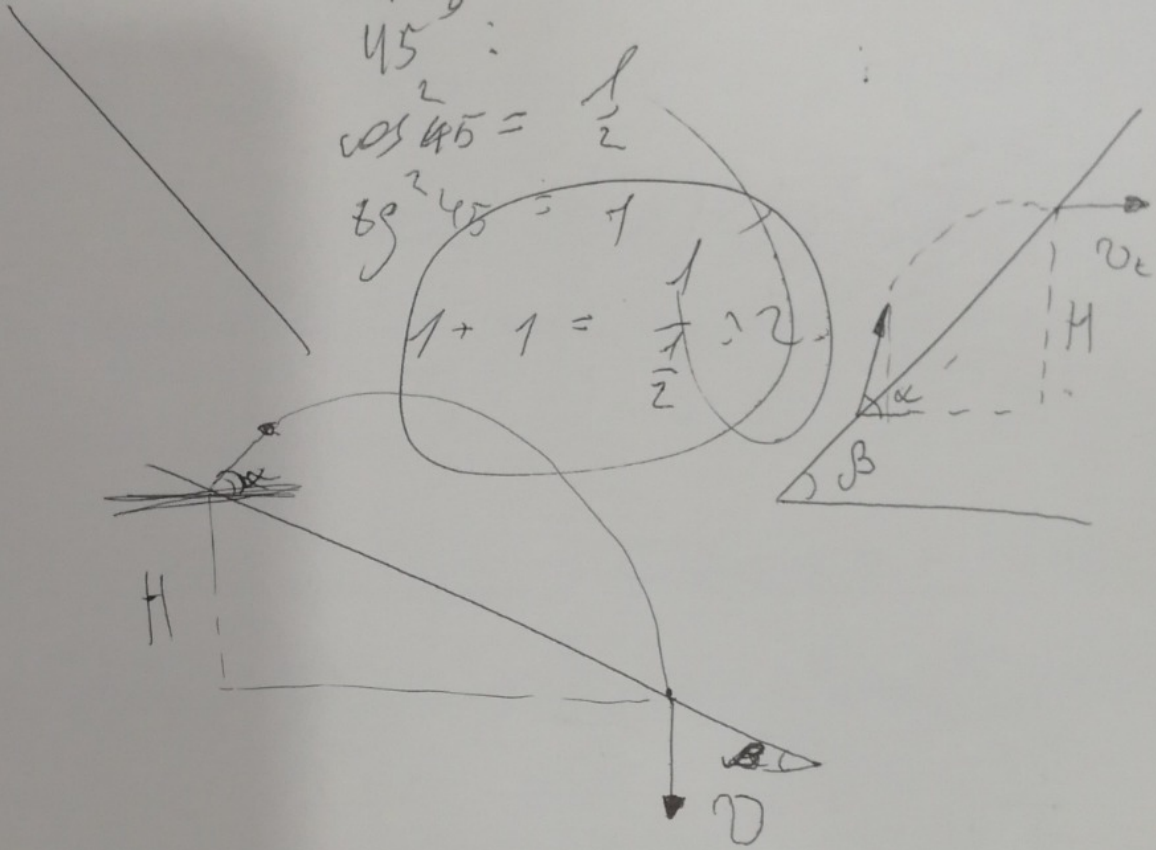 45 :
cos²45 = 1/2
tg²45 = 1
1 + 1 = 1/(1/2) = 2
α
H
β
α
H
v